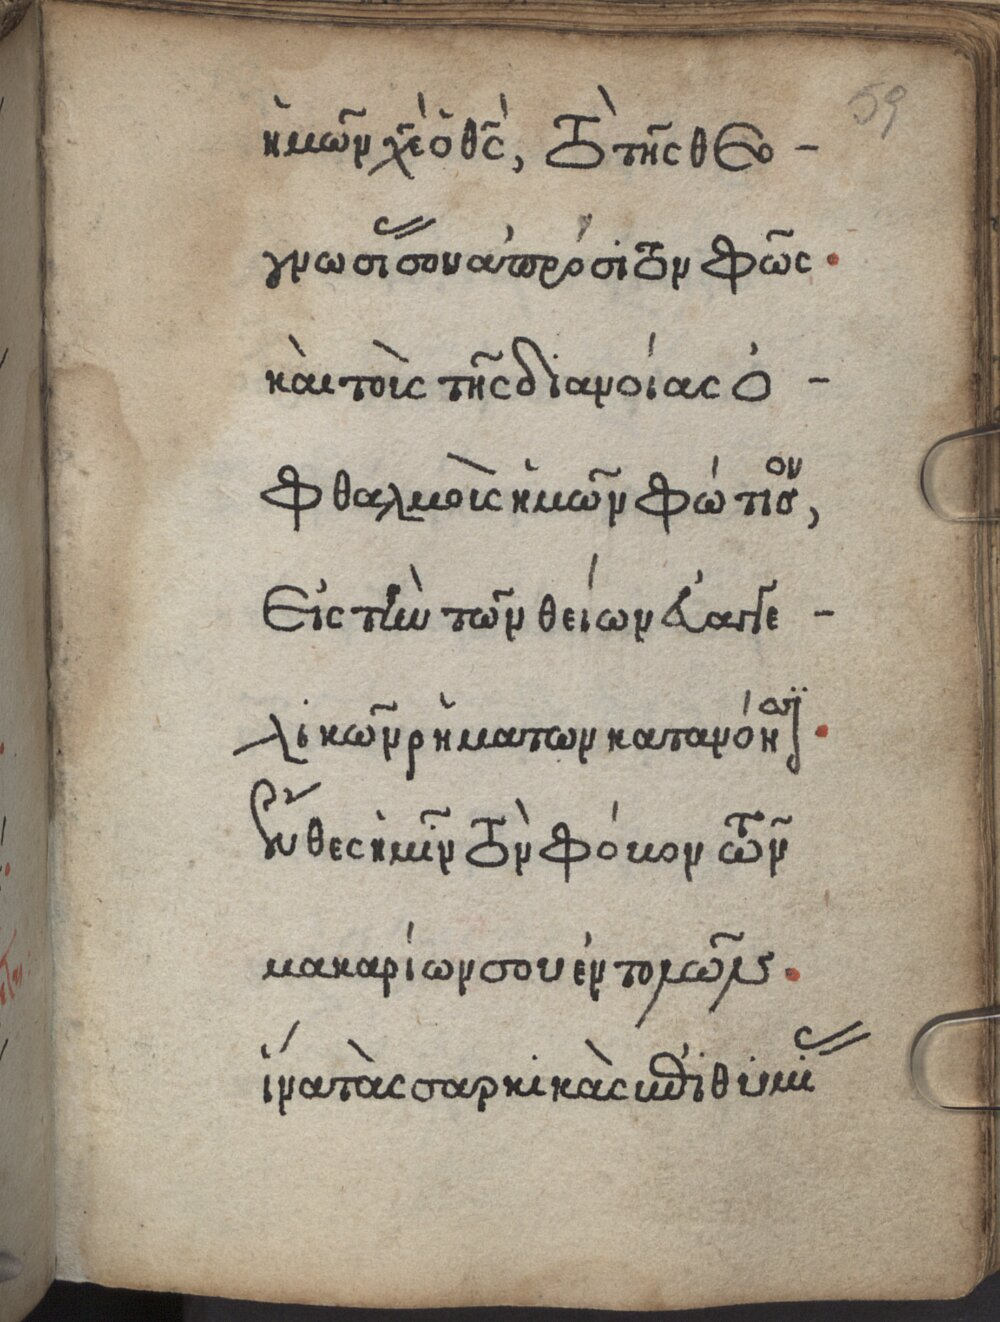 59
ἡμῶν χ̅ε̅ ὁ θ̅ς̅, τὸ τῆς θεο –
γνωσίας σου ἀπρόσιτον φῶς.
καὶ τοῖς τῆς διανοίας ὀ –
φθαλμοῖς ἡμῶν φώτισον,
εἰς τὴν τῶν θείων εὐαγγε –
λικῶν ῥημάτων κατανόησιν.
ἔνθες ἡμῖν τὸν φόβον τῶν
μακαρίων σου ἐντολῶν.
ἵνα τὰς σαρκικὰς ἐπιθυμίας